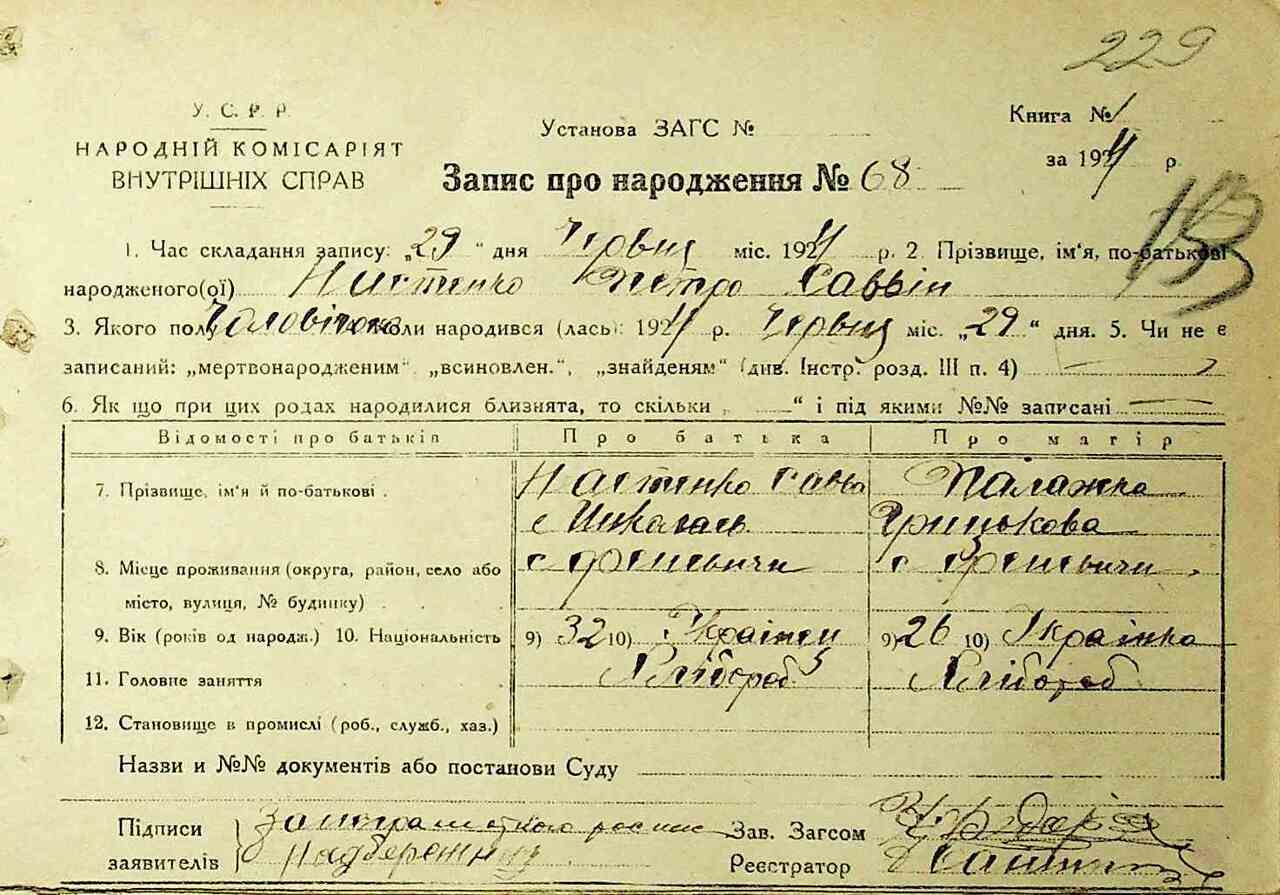 229
У. С. Р. Р.
НАРОДНІЙ КОМІСАРІЯТ
ВНУТРІШНІХ СПРАВ
Установа ЗАГС №
Книга № 1
за 1924 р.
Запис про народження № 68
153
1. Час складання запису: „29" дня Червня міс. 1924 р. 2. Прізвище, ім'я, по-батькові
народженого(ої) Настенко Петро Саввін
3. Якого полу Чоловічого коли народився (лась): 1924 р. Червня міс. „29" дня. 5. Чи не є
записаний: „мертвонародженим" „всиновлен.", „знайденям" (див. Інстр. розд. III п. 4)
6. Як що при цих родах народилися близнята, то скільки „ " і під якими №№ записані
Відомості про батьків Про батька Про матір
7. Прізвище, ім'я й по-батькові . Настенко Савва Палажка
Грицькова
8. Місце проживання (округа, район, село або с с
місто, вулиця, № будинку)
9. Вік (років од народж.) 10. Національність 9) 32 10) Українец 9) 26 10) Українка
11. Головне заняття Хлібороб Хлібороб
12. Становище в промислі (роб., служб., хаз.)
Назви и №№ документів або постанови Суду
Підписи
заявителів
Зав. Загсом
Реєстратор